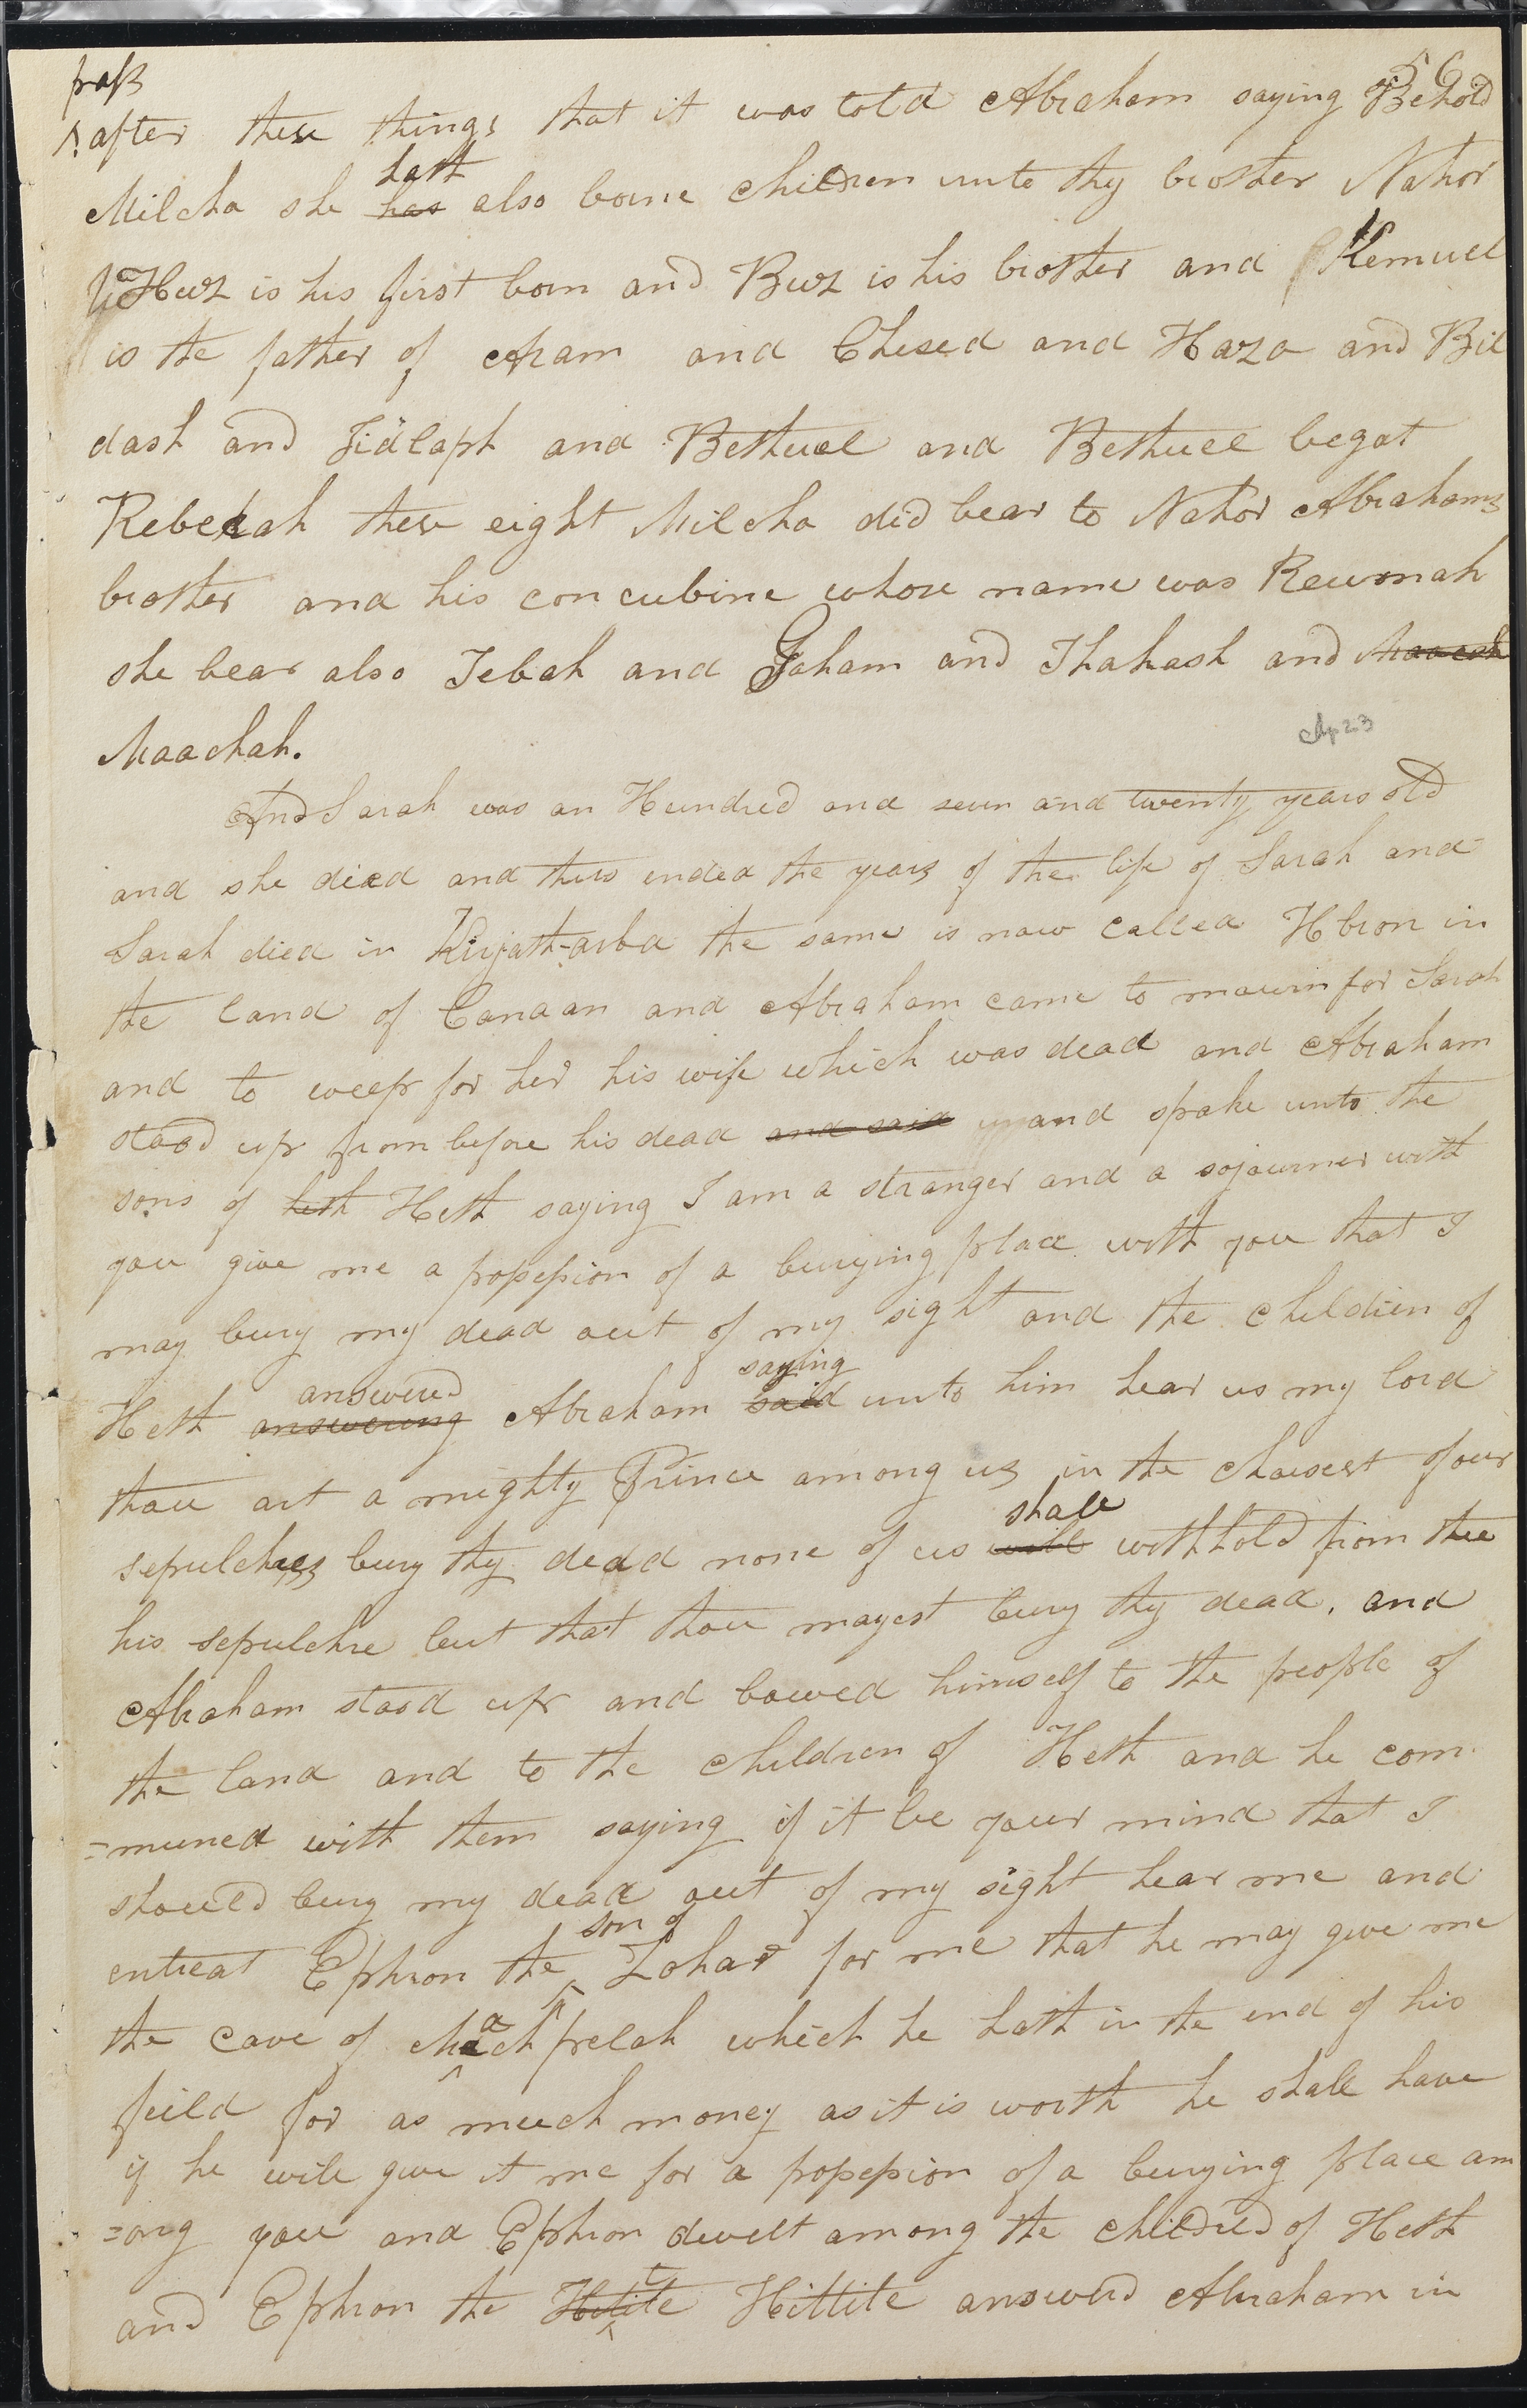 pass 56
after these things that it was told Abraham saying Behold
hath
Milcha she has also borne children unto thy brother Nahor
Huz is his first born and Buz is his brother and Kemuel
is the father of Aram and Chesed and Hazo and Bil
dash and Jidlaph and Bethuel and Bethuel begat
Rebekah these eight Milcha did bear to Nahor Abrahams
brother and his concubine whose name was Reumah
she bear also Tebah and Gaham and Thahash and Maacah
Maachah.
Chp 23
And Sarah was an Hundred and seven and twenty years old
and she died and thus ended the years of the life of Sarah and
Sarah died in Kirjath-arba the same is now called Hbron in
the land of Canaan and Abraham came to mourn for Sarah
and to weep for her his wife which was dead and Abraham
stood up from before his dead and said and spake unto the
sons of heth Heth saying I am a stranger and a sojourner with
you give me a possession of a burying place with you that I
may bury my dead out of my sight and the children of
answered saying
Heth answering Abraham said unto him hear us my lord
thou art a mighty Prince among us in the choisest of our
shall
sepulchres bury thy dead none of us will withhold from thee
his sepulchre but that thou mayest bury thy dead, and
Abraham stood up and bowed himself to the people of
the land and to the children of Heth and he com
=muned with them saying if it be your mind that I
should bury my dead out of my sight hear me and
son of
entreat Ephron the ^ Zohar for me that he may give me
the cave of Machpelah which he hath in the end of his
feild for as much money as it is worth he shall have
if he will give it me for a possession of a burying place am
=ong you and Ephron dwelt among the children of Heth
and Ephron the Hitite Hittite answerd Abraham in